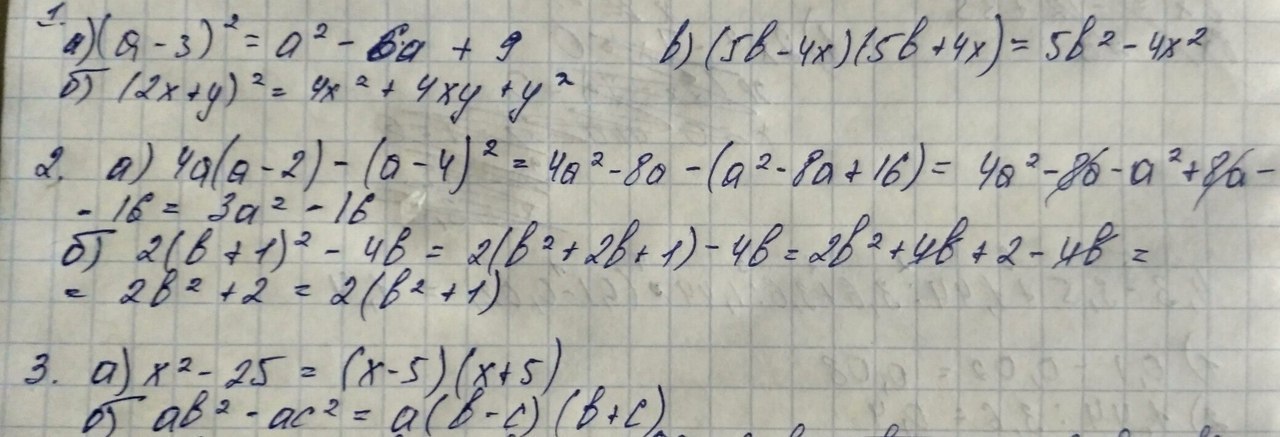 1.
а) (a - 3)² = a² - 6a + 9
в) (5b - 4x)(5b + 4x) = 5b² - 4x²
б) (2x + y)² = 4x² + 4xy + y²
2. а) 4a(a - 2) - (a - 4)² = 4a² - 8a - (a² - 8a + 16) = 4a² - 8a - a² + 8a -
- 16 = 3a² - 16
б) 2(b + 1)² - 4b = 2(b² + 2b + 1) - 4b = 2b² + 4b + 2 - 4b =
= 2b² + 2 = 2(b² + 1)
3. а) x² - 25 = (x - 5)(x + 5)
б) ab² - ac² = a(b - c)(b + c)